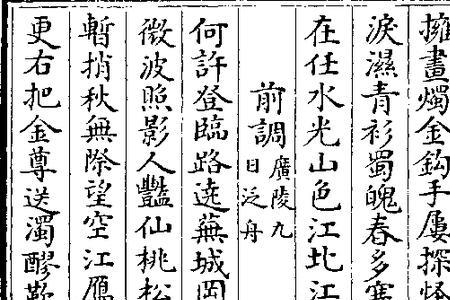 擁畫燭金鈎手屢探
淚濕青衫蜀魄春多
在任水光山色江北江
前調廣陵九日泛舟
何許登臨路遶蕪城岡
微波照影人豔仙桃松
暫捎秋無際望空江鴈
更右把金尊送濁醪